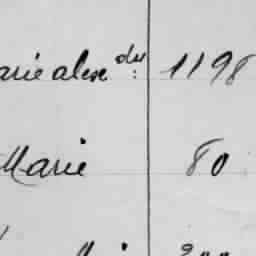 arie alex dre 1198
Marie 80